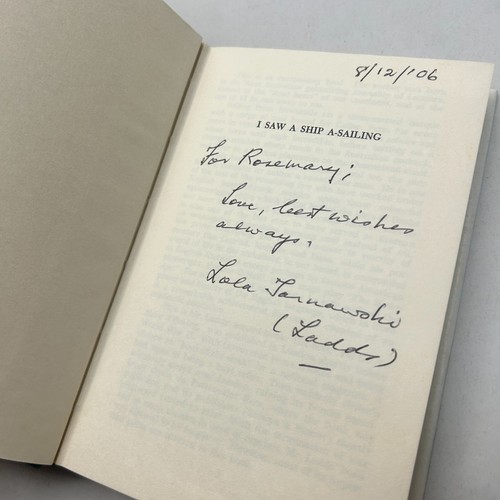 8/12/'06
I SAW A SHIP A-SAILING
For Rosemary;
Love, best wishes
always.
Lola Tarnawski
(Ladds)